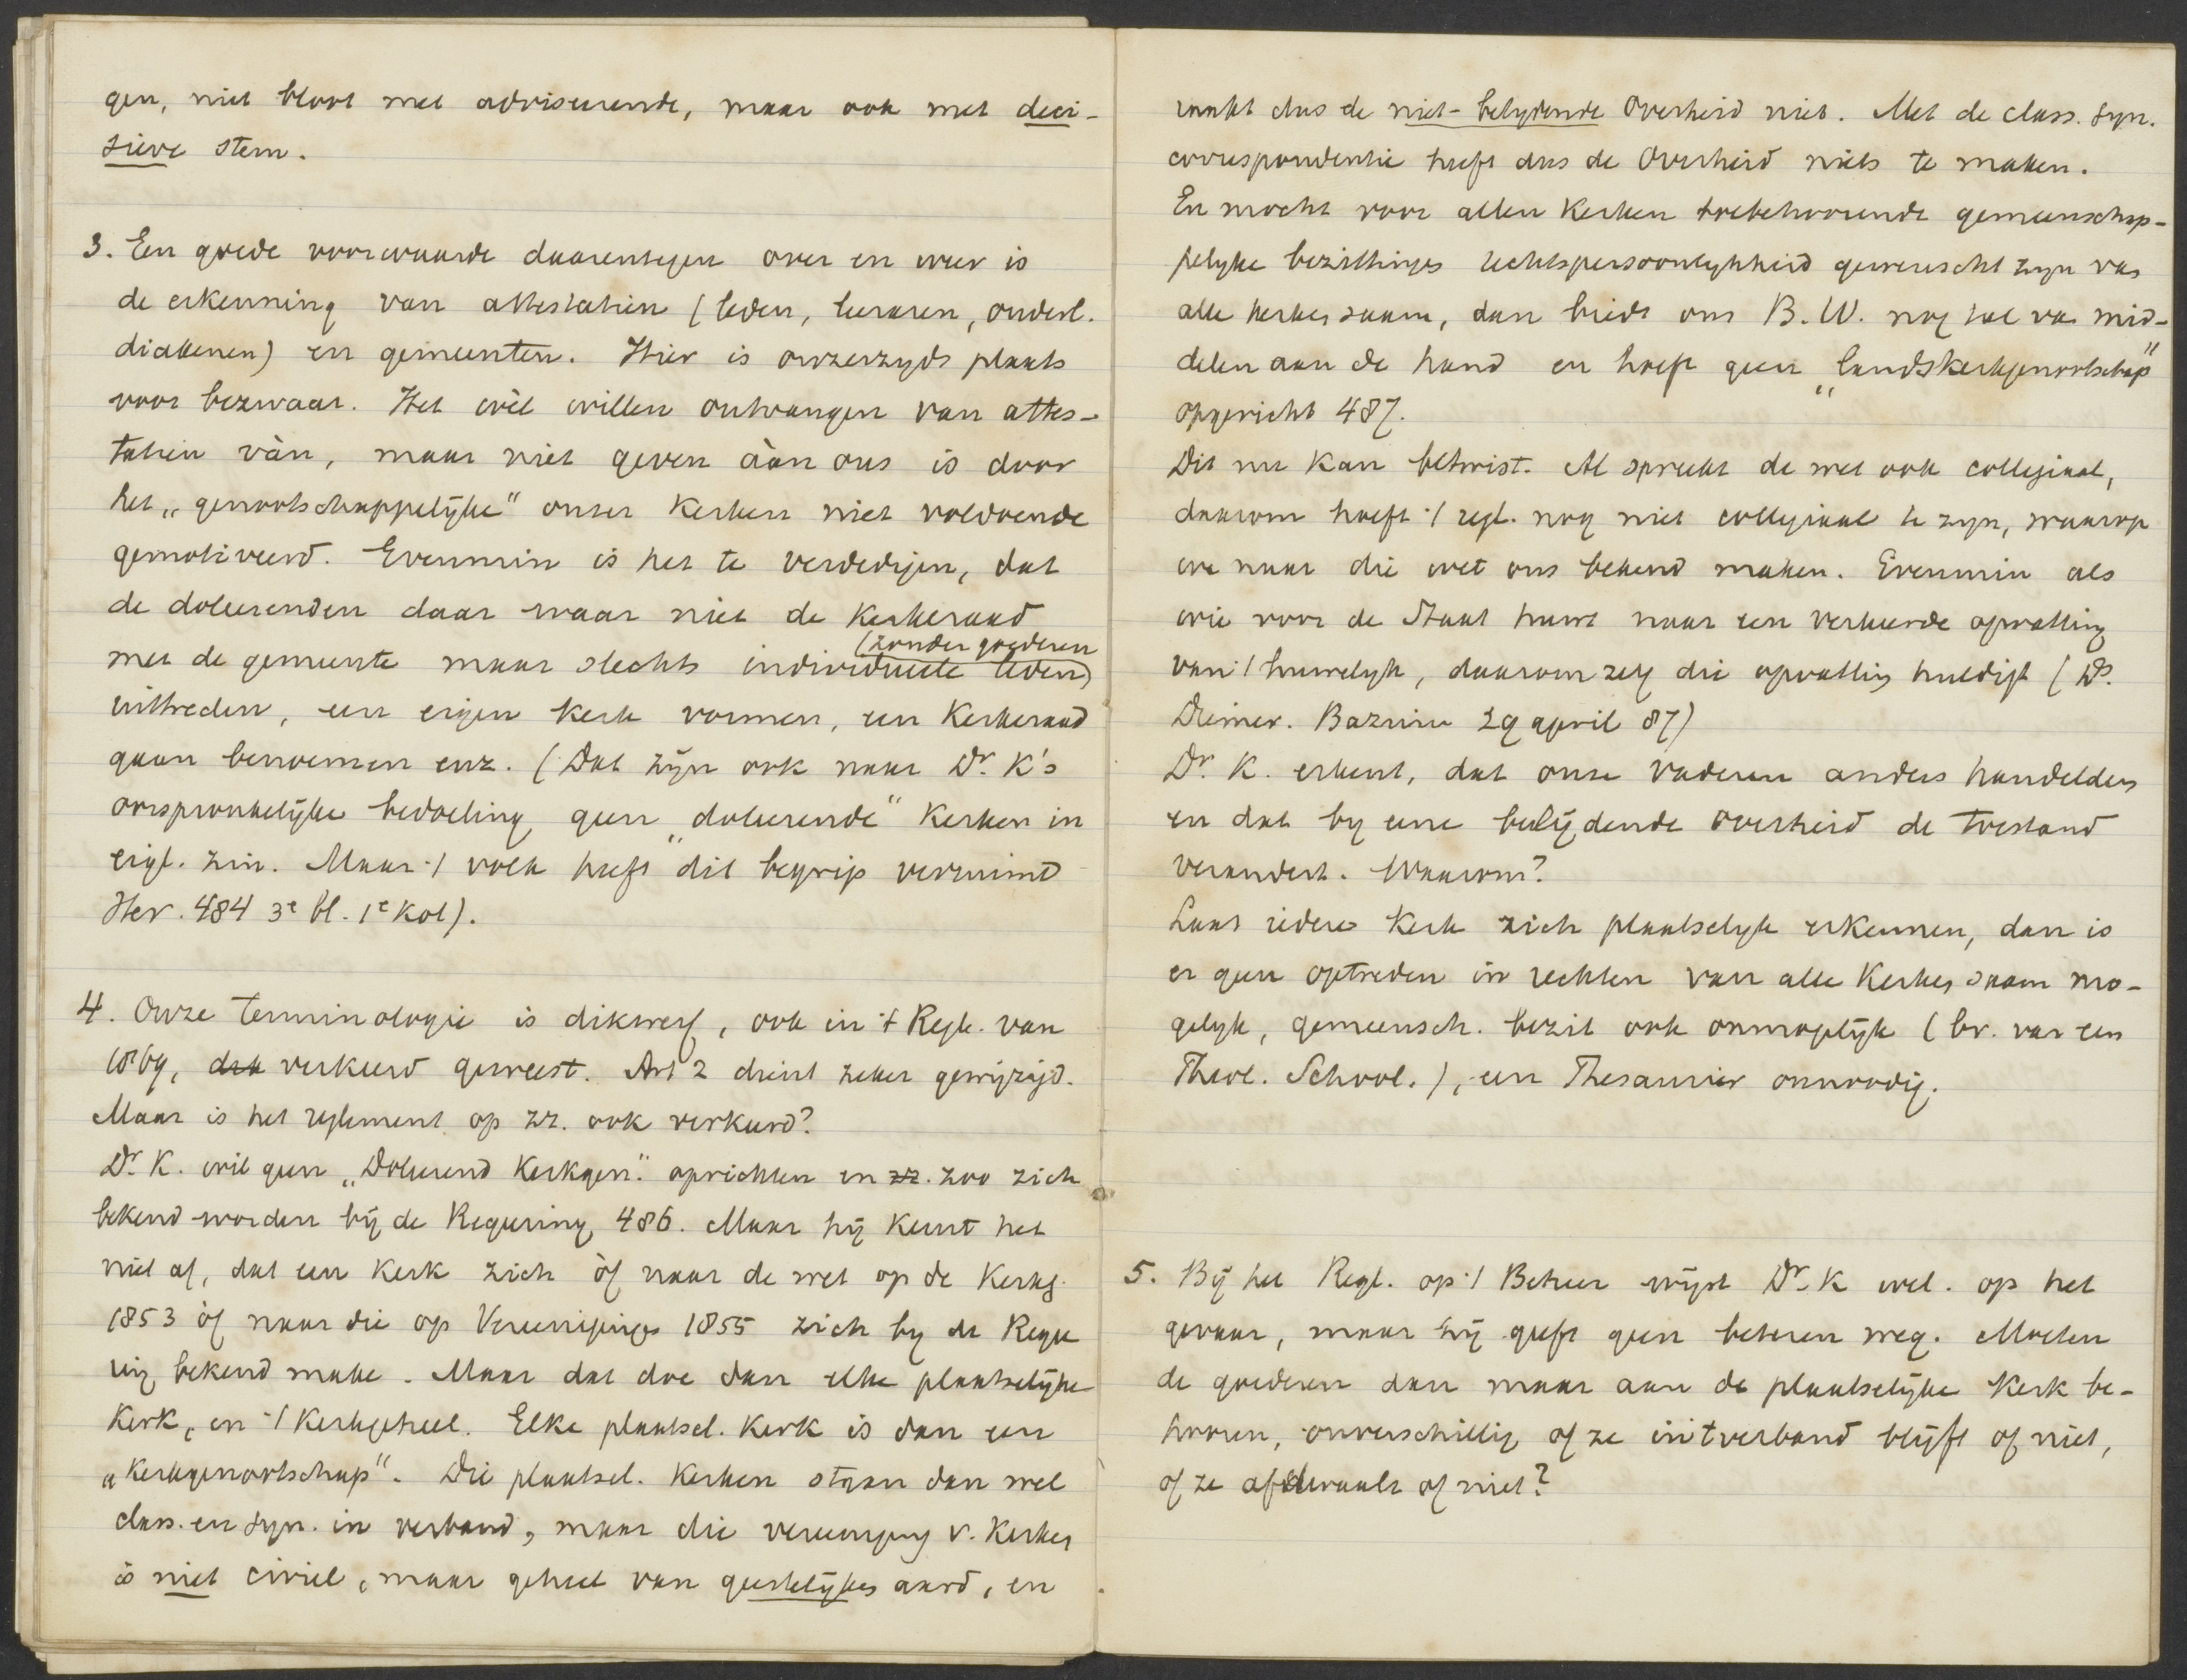 gen, niet bloot met adviseerende, maar ook met deci-
sieve stem.
3. Een goede voorwaarde daarentegen over en weer is
de erkenning van attestatien (leden, leeraren, ouderl.
diakenen) en gemeenten. Hier is onzerzyds plaats
voor bezwaar. Het wèl willen ontvangen van attes-
tatien vàn, maar niet geven áàn ons is door
het „genootschappelijke" onzer Kerken niet voldoende
gemotiveerd. Evenmin is het te verdedigen, dat
de doleerenden daar waar niet de Kerkeraad
(zonder goederen
met de gemeente maar slechts individueele leden)
uittreden, een eigen Kerk vormen, een Kerkeraad
gaan benoemen enz. (Dat zijn ook naar Dr. K's
oorspronkelijke bedoeling geen „doleerende" Kerken in
eigl. zin. Maar 't volk heeft dit begrip verruimd
Her. 484 3e bl. 1e Kol).
4. Onze terminologie is dikwerf, ook in 't Regl. van
1869, dat verkeerd geweest. Art 2 dient zeker gewijzigd.
Maar is het reglement op zz. ook verkeerd?
Dr. K. wil geen „Doleerend Kerkgen." oprichten en zz. zoo zich
bekend worden bij de Regeering 486. Maar hij keurt het
niet af, dat een Kerk zich òf naar de wet op de Kerkg.
1853 òf naar die op Vereenigingen 1855 zich by de Regee
ring bekend make. Maar dat doe dan elke plaatselijke
Kerk, en 't Kerkgeheel. Elke plaatsel. Kerk is dan een
„Kerkgenootschap". Die plaatsel. Kerken staan dan wel
class. en syn. in verband, maar die vereeniging v. Kerken
is niet civiel, maar geheel van geestelijken aard, en
raakt dus de niet-belydende Overheid niet. Met de class. syn.
correspondentie heeft dus de Overheid niets te maken.
En mocht voor allen Kerken toebehoorende gemeenschap-
pelyke bezittingen rechtspersoonlykheid gewenscht zyn van
alle kerken saam, dan biedt ons B. W. nog tal van mid-
delen aan de hand en hoeft geen „landskerkgenootschap"
opgericht 487.
Dit nu kan betwist. Al spreekt de wet ook collegiaal,
daarom hoeft 't regl. nog niet collegiaal te zyn, waarop
we naar die wet ons bekend maken. Evenmin als
wie voor de Staat huwt naar een verkeerde opvatting
van 't huwelyk, daarom zelf die opvatting huldigt (Ds.
Diemer. Bazuin 29 april 87)
Dr. K. erkent, dat onze vaderen anders handelden
en dat by eene belijdende overheid de toestand
verandert. Waarom?
Laat iedere Kerk zich plaatselyk erkennen, dan is
er geen optreden in rechten van alle Kerken saam mo-
gelyk, gemeensch. bezit ook onmogelijk (bv. van een
Theol. School.), een Thesaurier onnoodig.
5. Bij het Regl. op 't Beheer wijst Dr. K wel. op het
gevaar, maar hij geeft geen beteren weg. Moeten
de goederen dan maar aan de plaatselijke Kerk be-
hooren, onverschillig of ze in 't verband blijft of niet,
of ze afdwaalt of niet?